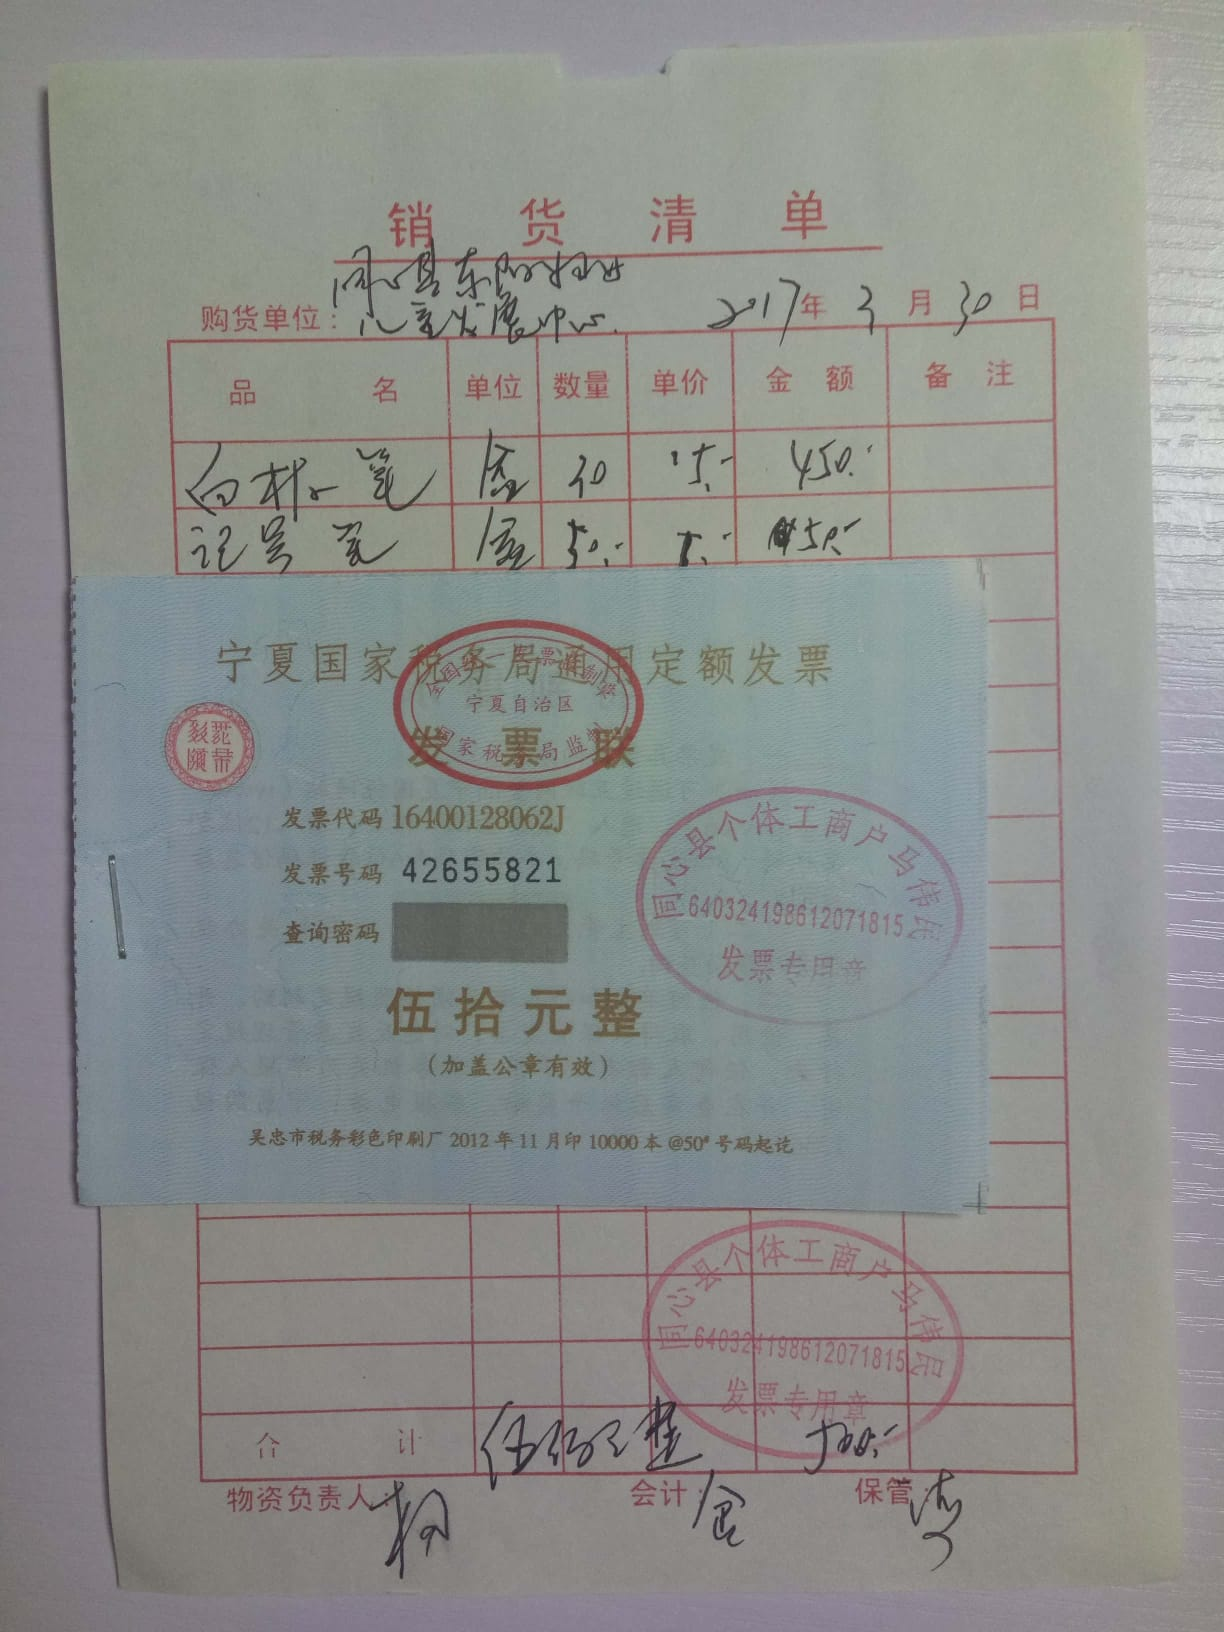 销货清单
购货单位：同心县东阳妇女
儿童发展中心
2017年3月30日
品名 单位 数量 单价 金额 备注
盒 30 15.- 450.-
记号笔 盒 50.- 1.- 50.-
宁夏国家税务局通用定额发票
全国统一发票监制章
宁夏自治区
国家税务局监制
发票联
发票代码 16400128062J
发票号码 42655821
查询密码
伍拾元整
（加盖公章有效）
吴忠市税务彩色印刷厂 2012 年 11 月印 10000 本 @50# 号码起讫
同心县个体工商户马伟民
640324198612071815
发票专用章
同心县个体工商户马伟民
640324198612071815
发票专用章
合计 伍佰元整 500.-
物资负责人： 会计： 保管：